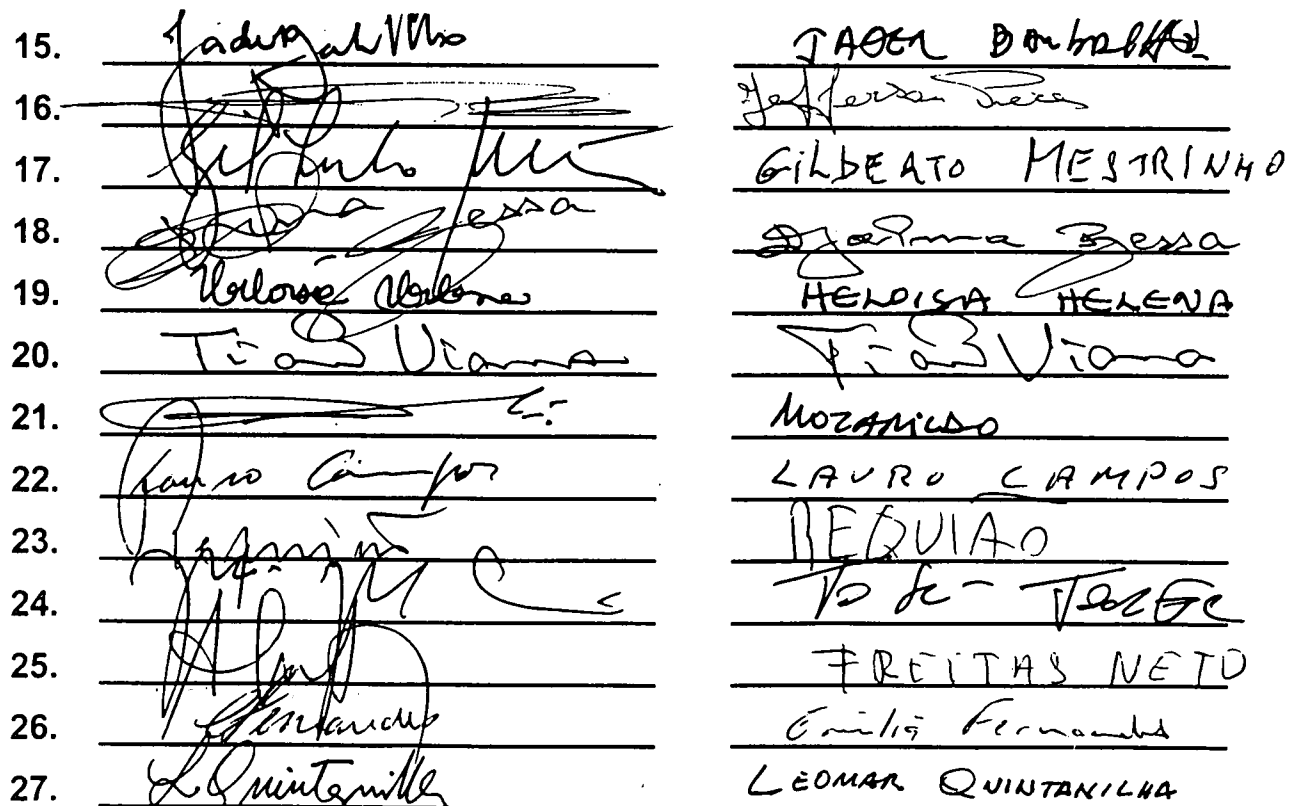 15. JADER BARBALHO
16. Jefferson Peres
17. GILBERTO MESTRINHO
18. Djalma Bessa Djalma Bessa
19. Heloisa Helena HELOISA HELENA
20. Tião Viana Tião Viana
21. MOZARILDO
22. Lauro Campos LAURO CAMPOS
23. REQUIAO
24.
25. FREITAS NETO
26. Fernandes Emilia Fernandes
27. L Quintanilha LEOMAR QUINTANILHA